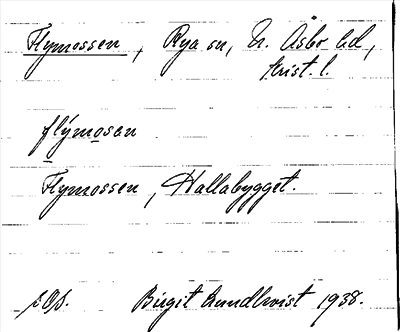 Flymossen, Rya sn, N. Åsbo hd,
Krist. l.
flýmosan
Flymossen, Hallabygget.
Birgit Lundkvist 1938.